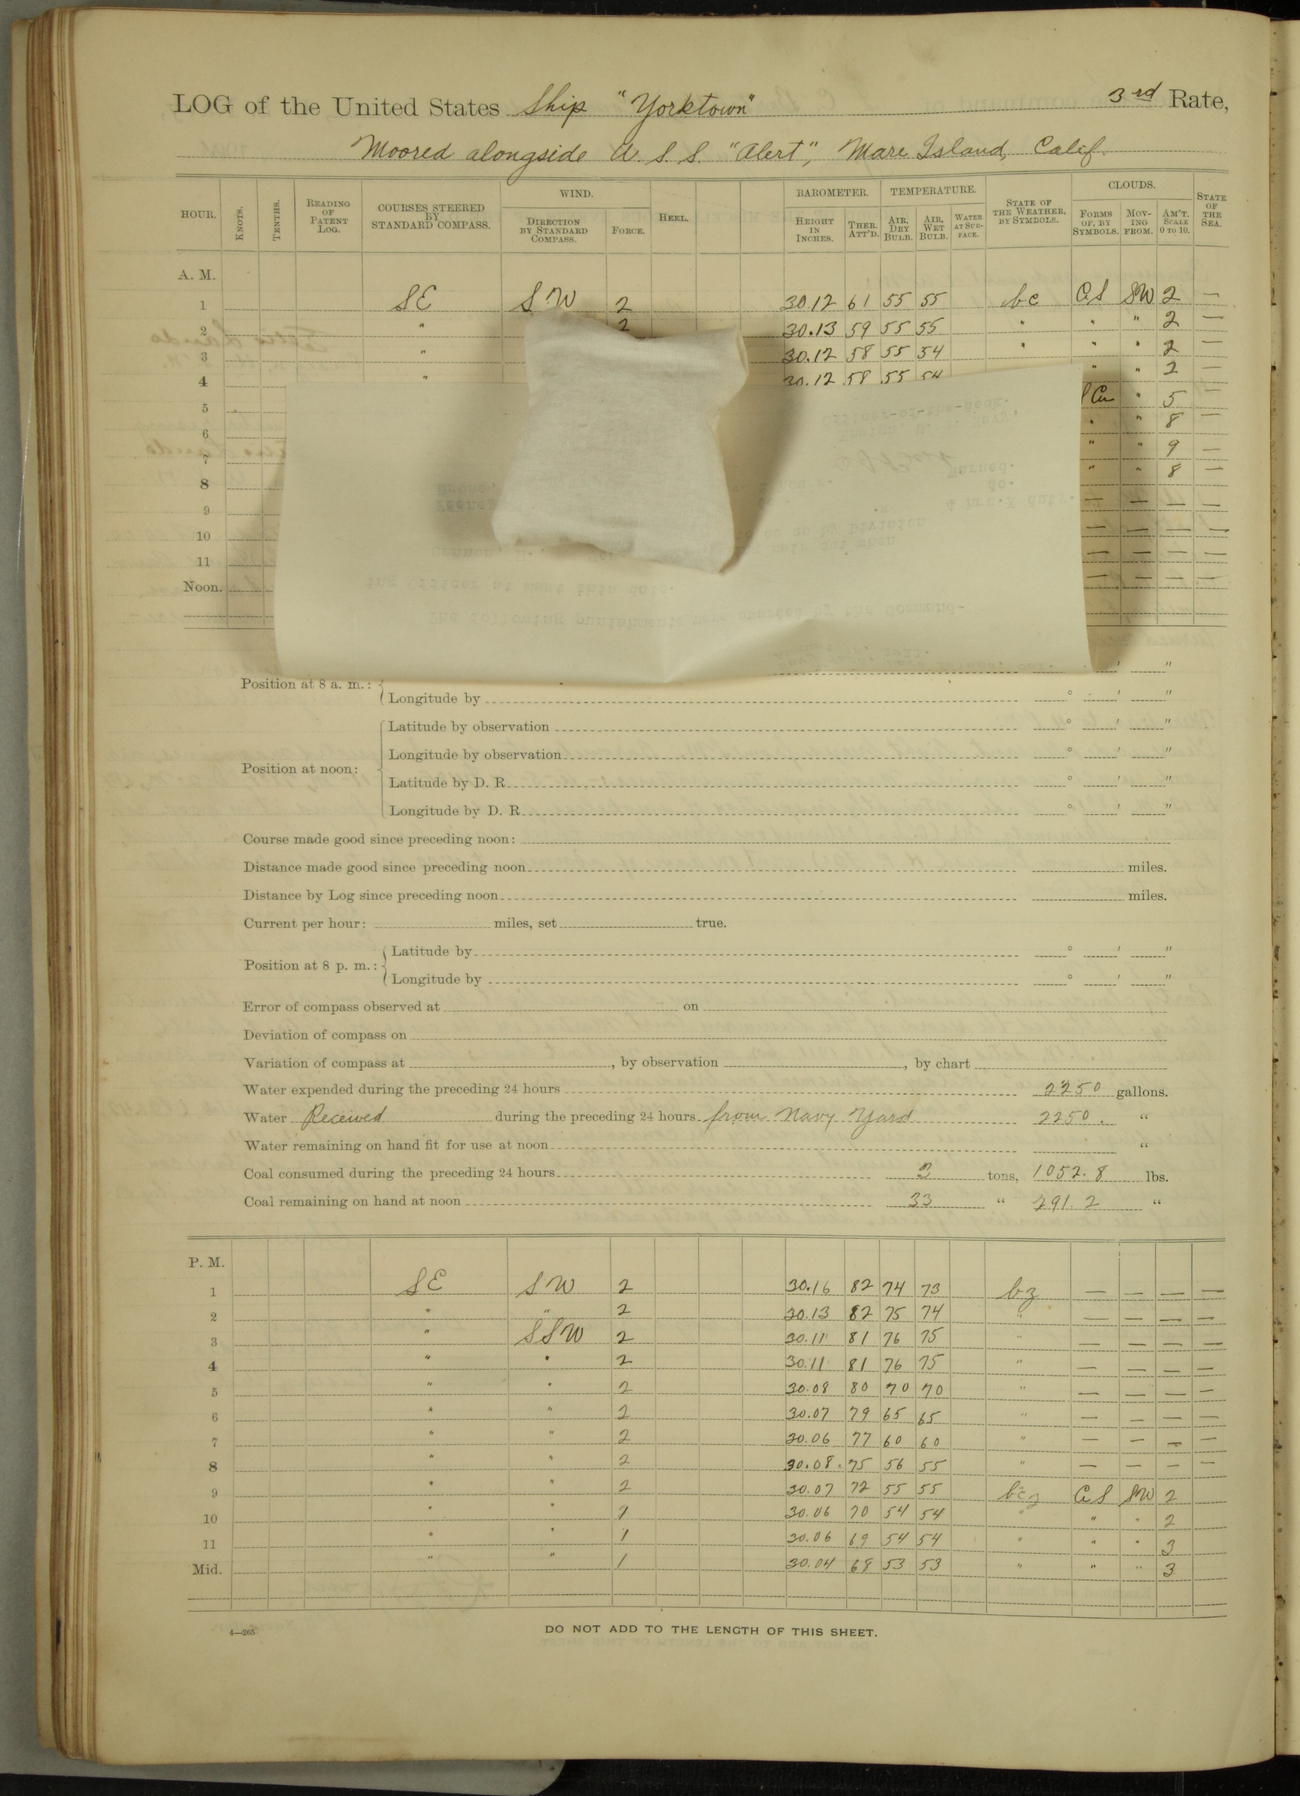 LOG of the United States Ship "Yorktown" 3rd Rate,
Moored alongside U. S. S. "Alert", Mare Island, Calif.
HOUR. KNOTS. TENTHS. READING OF PATENT LOG. COURSES STEERED BY STANDARD COMPASS. WIND. DIRECTION BY STANDARD COMPASS. FORCE. HEEL. BAROMETER. HEIGHT IN INCHES. THER. ATT'D. TEMPERATURE. AIR, DRY BULB. AIR, WET BULB. WATER AT SUR-FACE. STATE OF THE WEATHER, BY SYMBOLS. CLOUDS. FORMS OF, BY SYMBOLS. MOV-ING FROM. AM'T. SCALE 0 TO 10. STATE OF THE SEA.
A. M.
1 SE SW 2 30.12 61 55 55 bc CS SW 2 —
2 " 2 30.13 59 55 55 " " " 2 —
3 " 30.12 58 55 54 " " " 2 —
4 " 30.12 58 55 54 " " 2 —
5 Cu " 5 —
6 " " 8 —
7 " " 9 —
8 " " 8 —
9 — — — —
10 — — — —
11 — — — —
Noon. — — — —
Position at 8 a. m.:
Longitude by ° ' "
Position at noon:
Latitude by observation ° ' "
Longitude by observation ° ' "
Latitude by D. R. ° ' "
Longitude by D. R. ° ' "
Course made good since preceding noon:
Distance made good since preceding noon miles.
Distance by Log since preceding noon miles.
Current per hour: miles, set true.
Position at 8 p. m.:
Latitude by ° ' "
Longitude by ° ' "
Error of compass observed at on
Deviation of compass on
Variation of compass at , by observation , by chart
Water expended during the preceding 24 hours 2250 gallons.
Water Received during the preceding 24 hours from Navy Yard 2250. "
Water remaining on hand fit for use at noon "
Coal consumed during the preceding 24 hours 2 tons, 1052.8 lbs.
Coal remaining on hand at noon 33 " 291.2 "
P. M.
1 SE SW 2 30.16 82 74 73 bz — — — —
2 " " 2 30.13 82 75 74 " — — — —
3 " SSW 2 30.11 81 76 75 " — — — —
4 " " 2 30.11 81 76 75 " — — — —
5 " " 2 30.08 80 70 70 " — — — —
6 " " 2 30.07 79 65 65 " — — — —
7 " " 2 30.06 77 60 60 " — — — —
8 " " 2 30.08 75 56 55 " — — — —
9 " " 2 30.07 72 55 55 bcz CS SW 2
10 " " 1 30.06 70 54 54 " " " 2
11 " " 1 30.06 69 54 54 " " " 3
Mid. " " 1 30.04 68 53 53 " " " 3
4—265
DO NOT ADD TO THE LENGTH OF THIS SHEET.